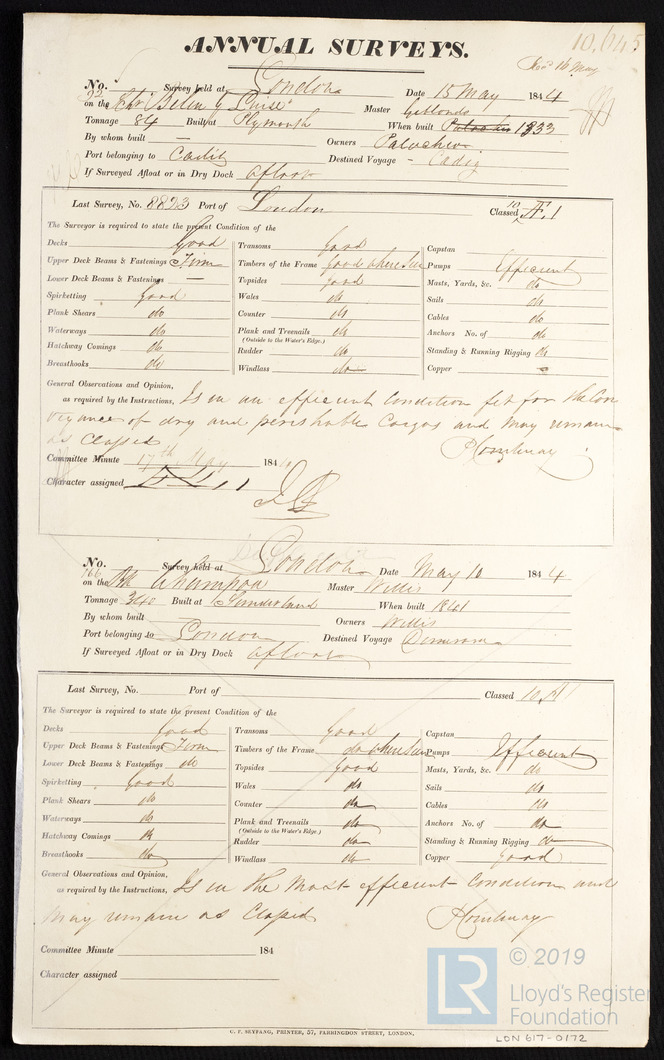 10,645
ANNUAL SURVEYS.
16 May
No. 92 Survey held at London Date 15 May 1844
on the Master
Tonnage 84 Built at Plymouth When built 1833
By whom built — Owners
Port belonging to Cadiz Destined Voyage - Cadiz
If Surveyed Afloat or in Dry Dock afloat
Last Survey, No. 8823 Port of London Classed
The Surveyor is required to state the present Condition of the
Decks Good
Upper Deck Beams & Fastenings Firm
Lower Deck Beams & Fastenings —
Spirketting Good
Plank Shears do
Waterways do
Hatchway Comings do
Breasthooks do
Transoms Good
Timbers of the Frame Good where seen
Topsides Good
Wales do
Counter do
Plank and Treenails do
(Outside to the Water's Edge.)
Rudder do
Windlass do
Capstan
Pumps Efficient
Masts, Yards, &c. do
Sails do
Cables do
Anchors No. of do
Standing & Running Rigging do
Copper
General Observations and Opinion,
as required by the Instructions, Is in an efficient condition fit for the con
veyance of dry and perishable Cargos and may remain
as Classed
Committee Minute 17th May 184
Character assigned
No. 166 Survey held at London Date May 10 1844
on the Bk Champion Master Willis
Tonnage 340 Built at Sunderland When built 1841
By whom built Owners Willis
Port belonging to London Destined Voyage Demerara
If Surveyed Afloat or in Dry Dock afloat
Last Survey, No. Port of Classed 10 A1
The Surveyor is required to state the present Condition of the
Decks Good
Upper Deck Beams & Fastenings Firm
Lower Deck Beams & Fastenings do
Spirketting Good
Plank Shears do
Waterways do
Hatchway Comings do
Breasthooks do
Transoms Good
Timbers of the Frame do where seen
Topsides Good
Wales do
Counter do
Plank and Treenails do
(Outside to the Water's Edge.)
Rudder do
Windlass do
Capstan
Pumps Efficient
Masts, Yards, &c. do
Sails do
Cables do
Anchors No. of do
Standing & Running Rigging do
Copper Good
General Observations and Opinion,
as required by the Instructions, Is in the most efficient condition and
may remain as Classed
Committee Minute 184
Character assigned
C. F. SEYFANG, PRINTER, 57, FARRINGDON STREET, LONDON.
LR © 2019
Lloyd's Register
Foundation
LON 617-0172